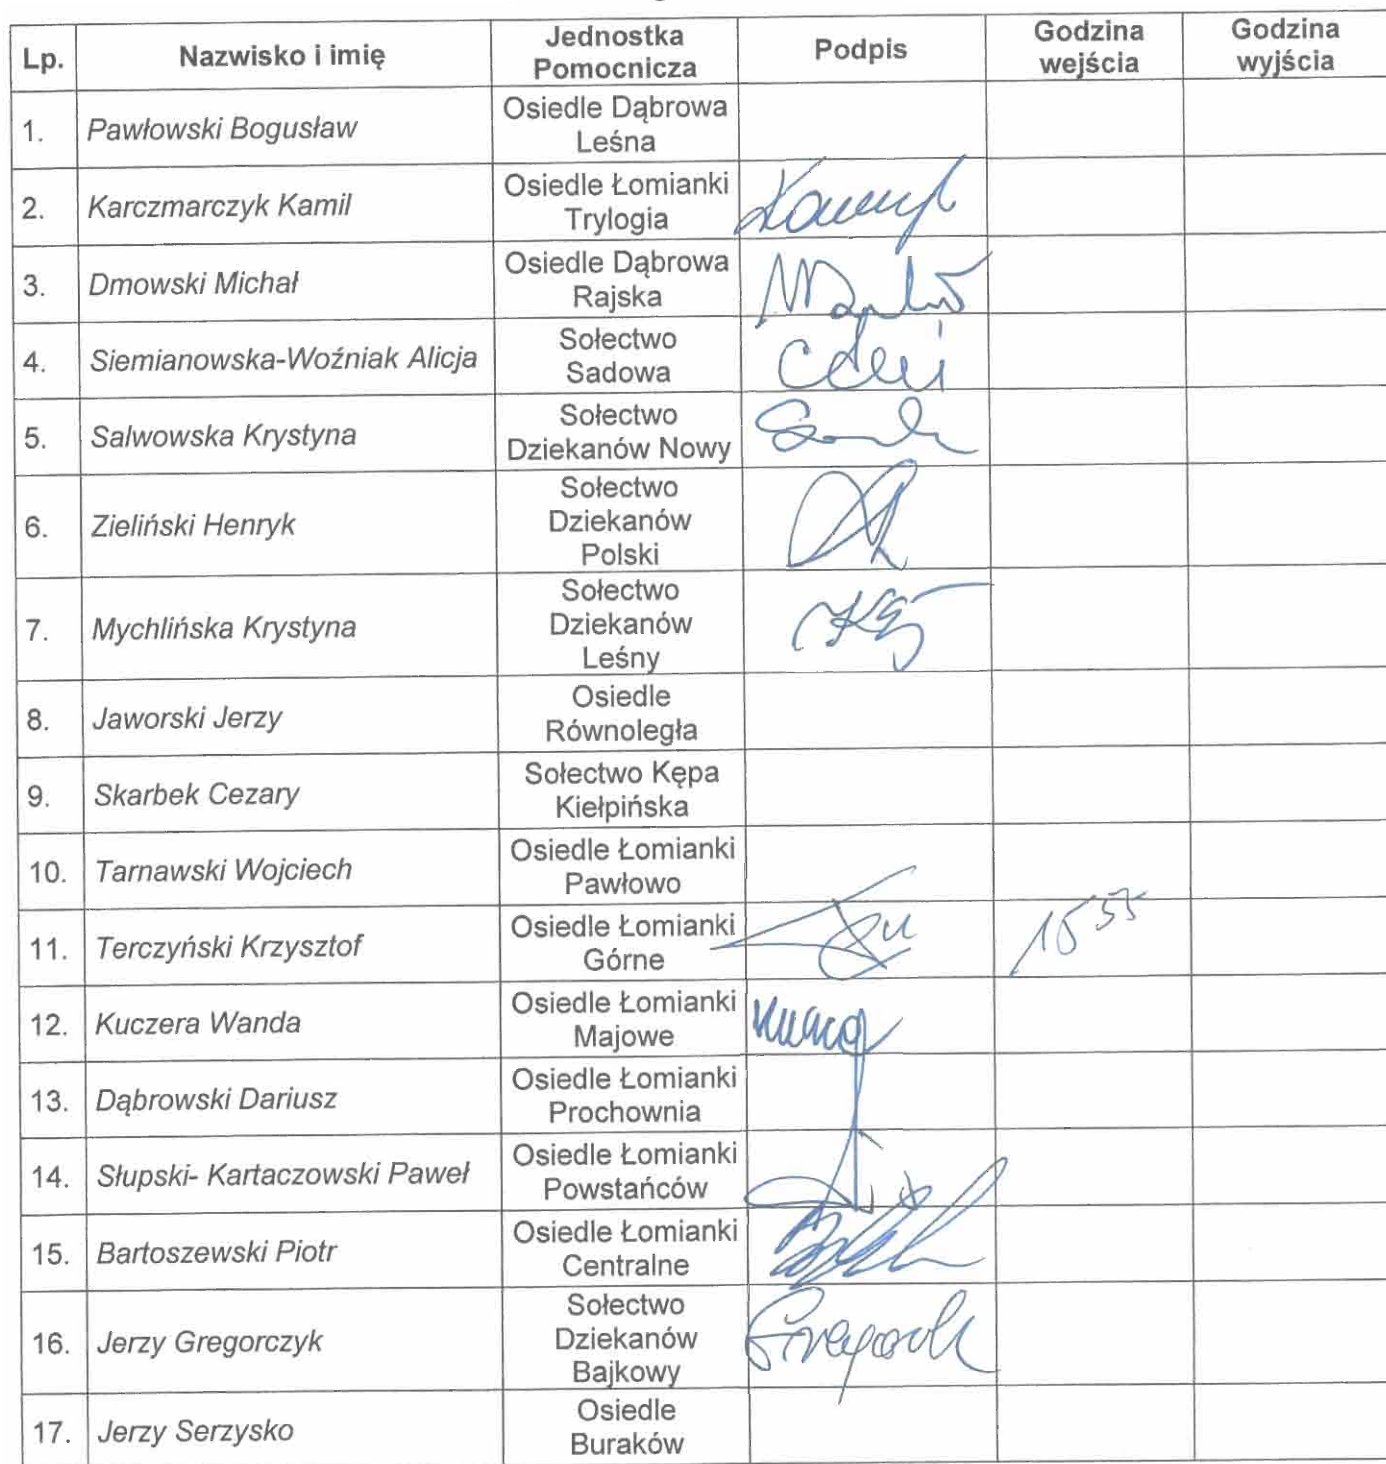 Lp. Nazwisko i imię Jednostka Pomocnicza Podpis Godzina wejścia Godzina wyjścia
1. Pawłowski Bogusław Osiedle Dąbrowa Leśna
2. Karczmarczyk Kamil Osiedle Łomianki Trylogia
3. Dmowski Michał Osiedle Dąbrowa Rajska
4. Siemianowska-Woźniak Alicja Sołectwo Sadowa
5. Salwowska Krystyna Sołectwo Dziekanów Nowy
6. Zieliński Henryk Sołectwo Dziekanów Polski
7. Mychlińska Krystyna Sołectwo Dziekanów Leśny
8. Jaworski Jerzy Osiedle Równoległa
9. Skarbek Cezary Sołectwo Kępa Kiełpińska
10. Tarnawski Wojciech Osiedle Łomianki Pawłowo
11. Terczyński Krzysztof Osiedle Łomianki Górne 15 55
12. Kuczera Wanda Osiedle Łomianki Majowe
13. Dąbrowski Dariusz Osiedle Łomianki Prochownia
14. Słupski- Kartaczowski Paweł Osiedle Łomianki Powstańców
15. Bartoszewski Piotr Osiedle Łomianki Centralne
16. Jerzy Gregorczyk Sołectwo Dziekanów Bajkowy
17. Jerzy Serzysko Osiedle Buraków